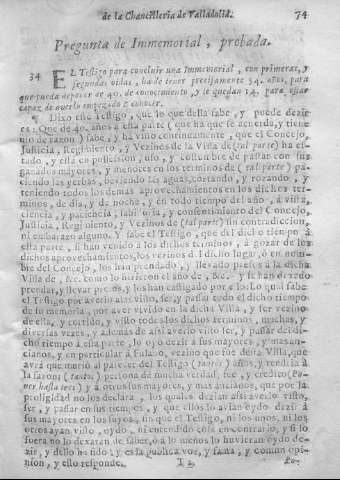 de la Chancilleria de Valladolid. 74
Pregunta de Immemorial, probada.
34 EL Testigo para concluir una Immemorial, con primeras, y
segundas oidas, ha de tener precisamente 54. años, para
que pueda deponer de 40. de conocimiento, y le quedan 14. para estar
capaz de averlo empezado à conocer.
¶ Dixo este Testigo, que lo que desta sabe, y puede dezir
es: Que de 40. años à esta parte (que hà que se acuerda, y tiene
uso de razon) sabe, y ha visto continuamente, que el Concejo,
Justicia, Regimiento, y Vezinos de la Villa de (tal parte) ha es-
tado, y està en possession, uso, y costumbre de pastar con sus
ganados mayores, y menores en los terminos de (tal parte) pa-
ciendo las yerbas, beviendo las aguas, cortando, y rozando, y
teniendo todos los demàs aprovechamientos en los dichos ter-
minos, de dia, y de noche, y en todo tiempo del año, à vista,
ciencia, y paciencia, sabiduria, y consentimiento del Concejo,
Justicia, Regimiento, y Vezinos de (tal parte) sin contradiccion,
ni embarazo alguno. Y sabe el Testigo, que del dicho tiempo à
esta parte, si han venido à los dichos terminos, à gozar de los
dichos aprovechamientos, los vezinos del dicho lugar, ò en nom-
bre del Concejo, los han prendado, y llevado presos à la dicha
Villa de, &c. como lo hizieron el año de, &c. y le han de todo
prendar, y llevar presos, y los han castigado por ello: Lo qual sabe
el Testigo por averlo assi visto, ser, y passar todo el dicho tiempo
de su memoria, por aver vivido en la dicha Villa, y ser vezino
de ella, y corrido, y visto todos los dichos terminos, muchas, y
diversas vezes, y ademàs de assi averlo visto ser, y passar del di-
cho tiempo à esta parte, lo oyò dezir à sus mayores, y mas an-
cianos, y en particular à Fulano, vezino que fue desta Villa, que
avrà que muriò al parecer del Testigo (tantos) años, y tendria à
la sazon (tantos) persona de mucha verdad, fee, y credito (Po-
ner hasta tres) y à otros sus mayores, y mas ancianos, que por la
prolixidad no los declara, los quales dezian assi averlo visto,
ser, y passar en sus tiempos, y que ellos lo avian oydo dezir à
sus mayores en los suyos, sin que el Testigo, ni los unos, ni los
otros ayan visto, oydo, ni entendido cosa en contrario, y si lo
fuera no lo dexaràn de saber, ò à lo menos lo huvieran oydo de-
zir, y dello ha sido, y es la publica voz, y fama, y comun opi-
nion, y esto responde. I 2 Lo